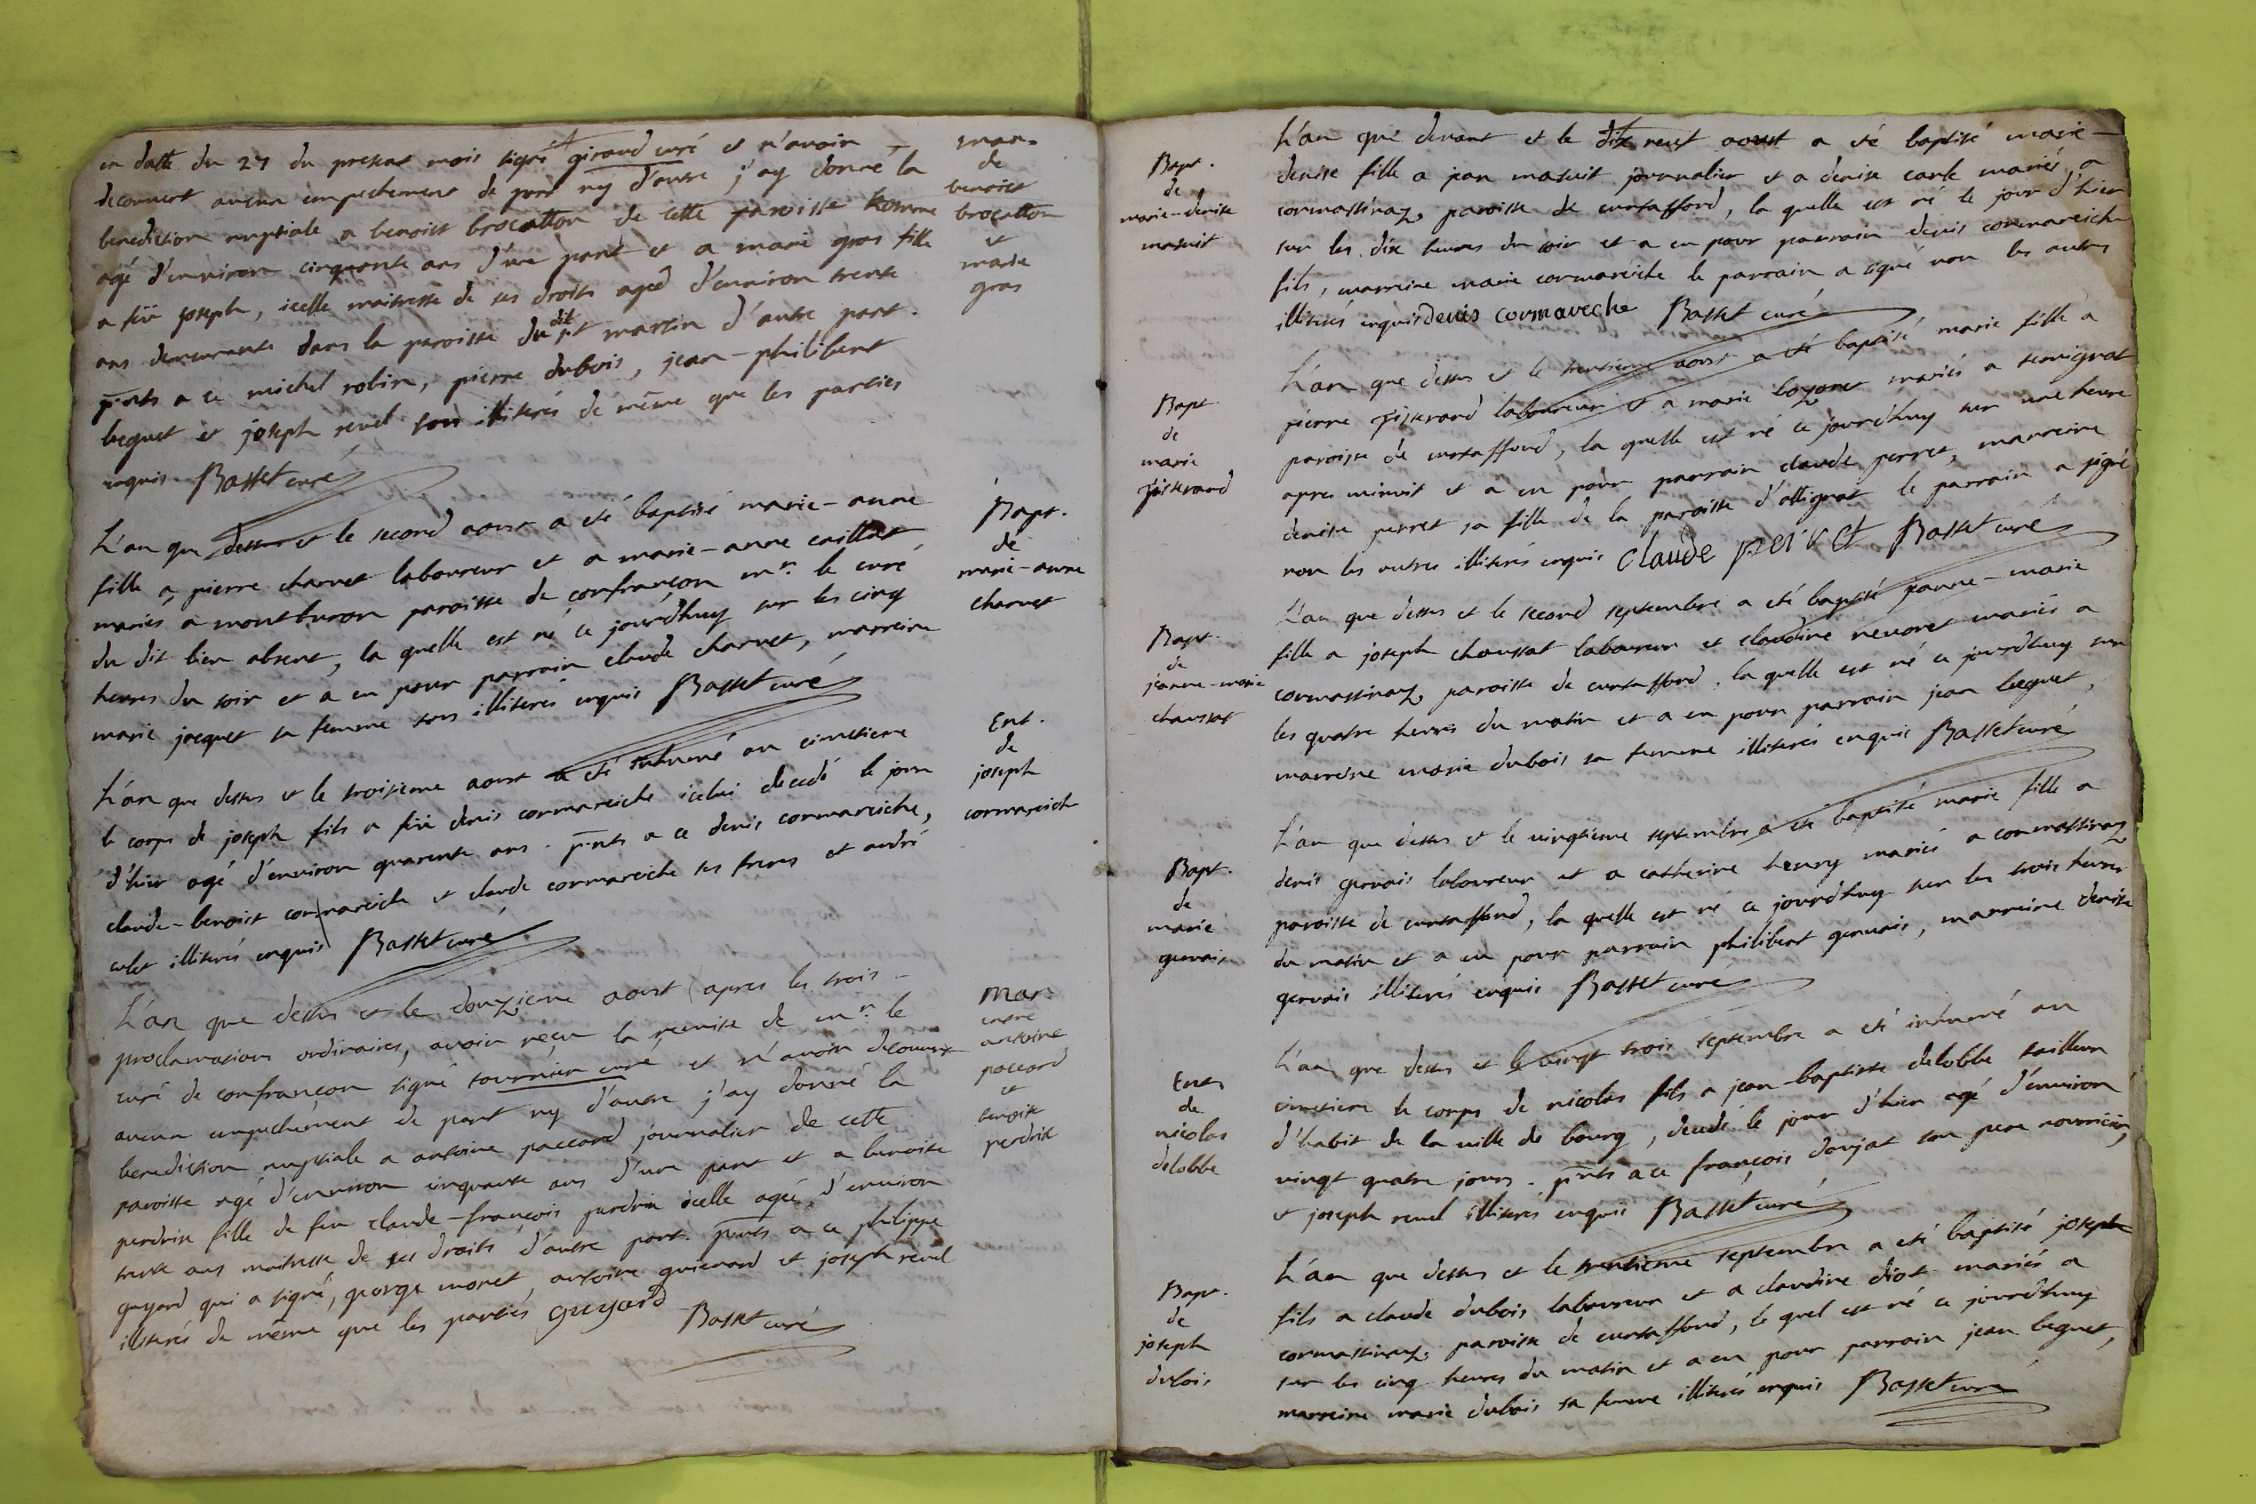 en datte du 27 du present mois signé giraud curé et n'avoir
decouvert aucun empechement de part ny d'autre j'ay donné la
benediction nuptiale a benoist brocatton de cette paroisse homme
agé d'environ cinquante ans d'une part et a marie gras fille
a feu joseph, icelle maitresse de ses droits agée d'environ trente
ans demeurante dans la paroisse du dit st martin d'autre part.
p̄nts a ce michel robin, pierre dubois, jean-philibert
beguet et joseph revel tous illiterés de même que les parties
enquis Basset curé
mar.
de
benoist
brocatton
et
marie
gras
L'an que dessus et le second aoust a été baptisé marie-anne
fille a pierre charvet laboureur et a marie-anne caillat
mariés a montburon paroisse de confrançon mr. le curé
du dit lieu absent, la quelle est né ce jourdhuy sur les cinq
heures du soir et a eu pour parrain claude charvet, marreine
marie jacquet sa femme tous illiterés enquis Basset curé
Bapt.
de
marie-anne
charvet
L'an que dessus et le troisieme aoust a été inhumé au cimetiere
le corps de joseph fils a feu denis cormareiche icelui decedé le jour
d'hier agé d'environ quarente ans. p̄nts a ce denis cormareiche,
claude-benoist cormareiche et claude cormareiche ses freres et andré
culet illiterés enquis Basset curé
Ent.
de
joseph
cormareich
L'an que dessus et le douzieme aoust apres les trois
proclamations ordinaires, avoir reçu la remise de mr. le
curé de confrançon signé tournier curé et n'avoir decouvert
aucun empechement de part ny d'autre j'ay donné la
benediction nuptiale a antoine paccard journalier de cette
paroisse agé d'environ cinquante ans d'une part et a benoite
perdrix fille de feu claude-françois perdrix icelle agée d'environ
trente ans maitresse de ses droits d'autre part. p̄nts a ce philippe
guyard qui a signé, george monet, antoine guienard et joseph revel
illiterés de même que les parties guyard Basset curé
mar.
entre
antoine
paccard
et
benoite
perdrix
L'an que devant et le dix neuf aoust a été baptisé marie-
denise fille a jean masuit journalier et a denise carle mariés a
cormassinaz, paroisse de curtafford, la quelle est né le jour d'hier
sur les dix heures du soir et a eu pour parrain denis cormareiche
fils, marreine marie cormareiche le parrain a signé non les autres
illiterés enquis denis cormareche Basset curé
Bapt.
de
marie-denise
masuit
L'an que dessus et le trentieme aoust a été baptisé marie fille a
pierre tisserand laboureur et a marie bozonet mariés a servignat
paroisse de curtafford, la quelle est né ce jourdhuy sur une heure
apres minuit et a eu pour parrain claude perret, marreine
denise perret sa fille de la paroisse d'attignat le parrain a signé
non les autres illiterés enquis claude perret Basset curé
Bapt.
de
marie
tisserand
L'an que dessus et le second septembre a été baptisé janne-marie
fille a joseph chaussat laboureur et claudine nevoret mariés a
cormassinaz, paroisse de curtafford, la quelle est né ce jourdhuy sur
les quatre heures du matin et a eu pour parrain jean beguet,
marreine marie dubois sa femme illiterés enquis Basset curé
Bapt.
de
jeanne-marie
chaussat
L'an que dessus et le vingtieme septembre a été baptisé marie fille a
denis gervais laboureur et a catherine henry mariés a cormassinaz
paroisse de curtafford, la quelle est né ce jourdhuy sur les trois heures
du matin et a eu pour parrain philibert gervais, marreine denise
gervais illiterés enquis Basset curé
Bapt.
de
marie
gervais
L'an que dessus et le vingt trois septembre a été inhumé au
cimetiere le corps de nicolas fils a jean-baptiste delobbe tailleur
d'habit de la ville de bourg, decedé le jour d'hier agé d'environ
vingt quatre jours. p̄nts a ce françois donjat son pere nourricier,
et joseph revel illiterés enquis Basset curé
Ent.
de
nicolas
delobbe
L'an que dessus et le trentieme septembre a été baptisé joseph
fils a claude dubois laboureur et a claudine diot mariés a
cormassinaz, paroisse de curtafford, le quel est né ce jourdhuy
sur les cinq heures du matin et a eu pour parrain jean beguet,
marreine marie dubois sa femme illiterés enquis Basset curé
Bapt.
de
joseph
dubois